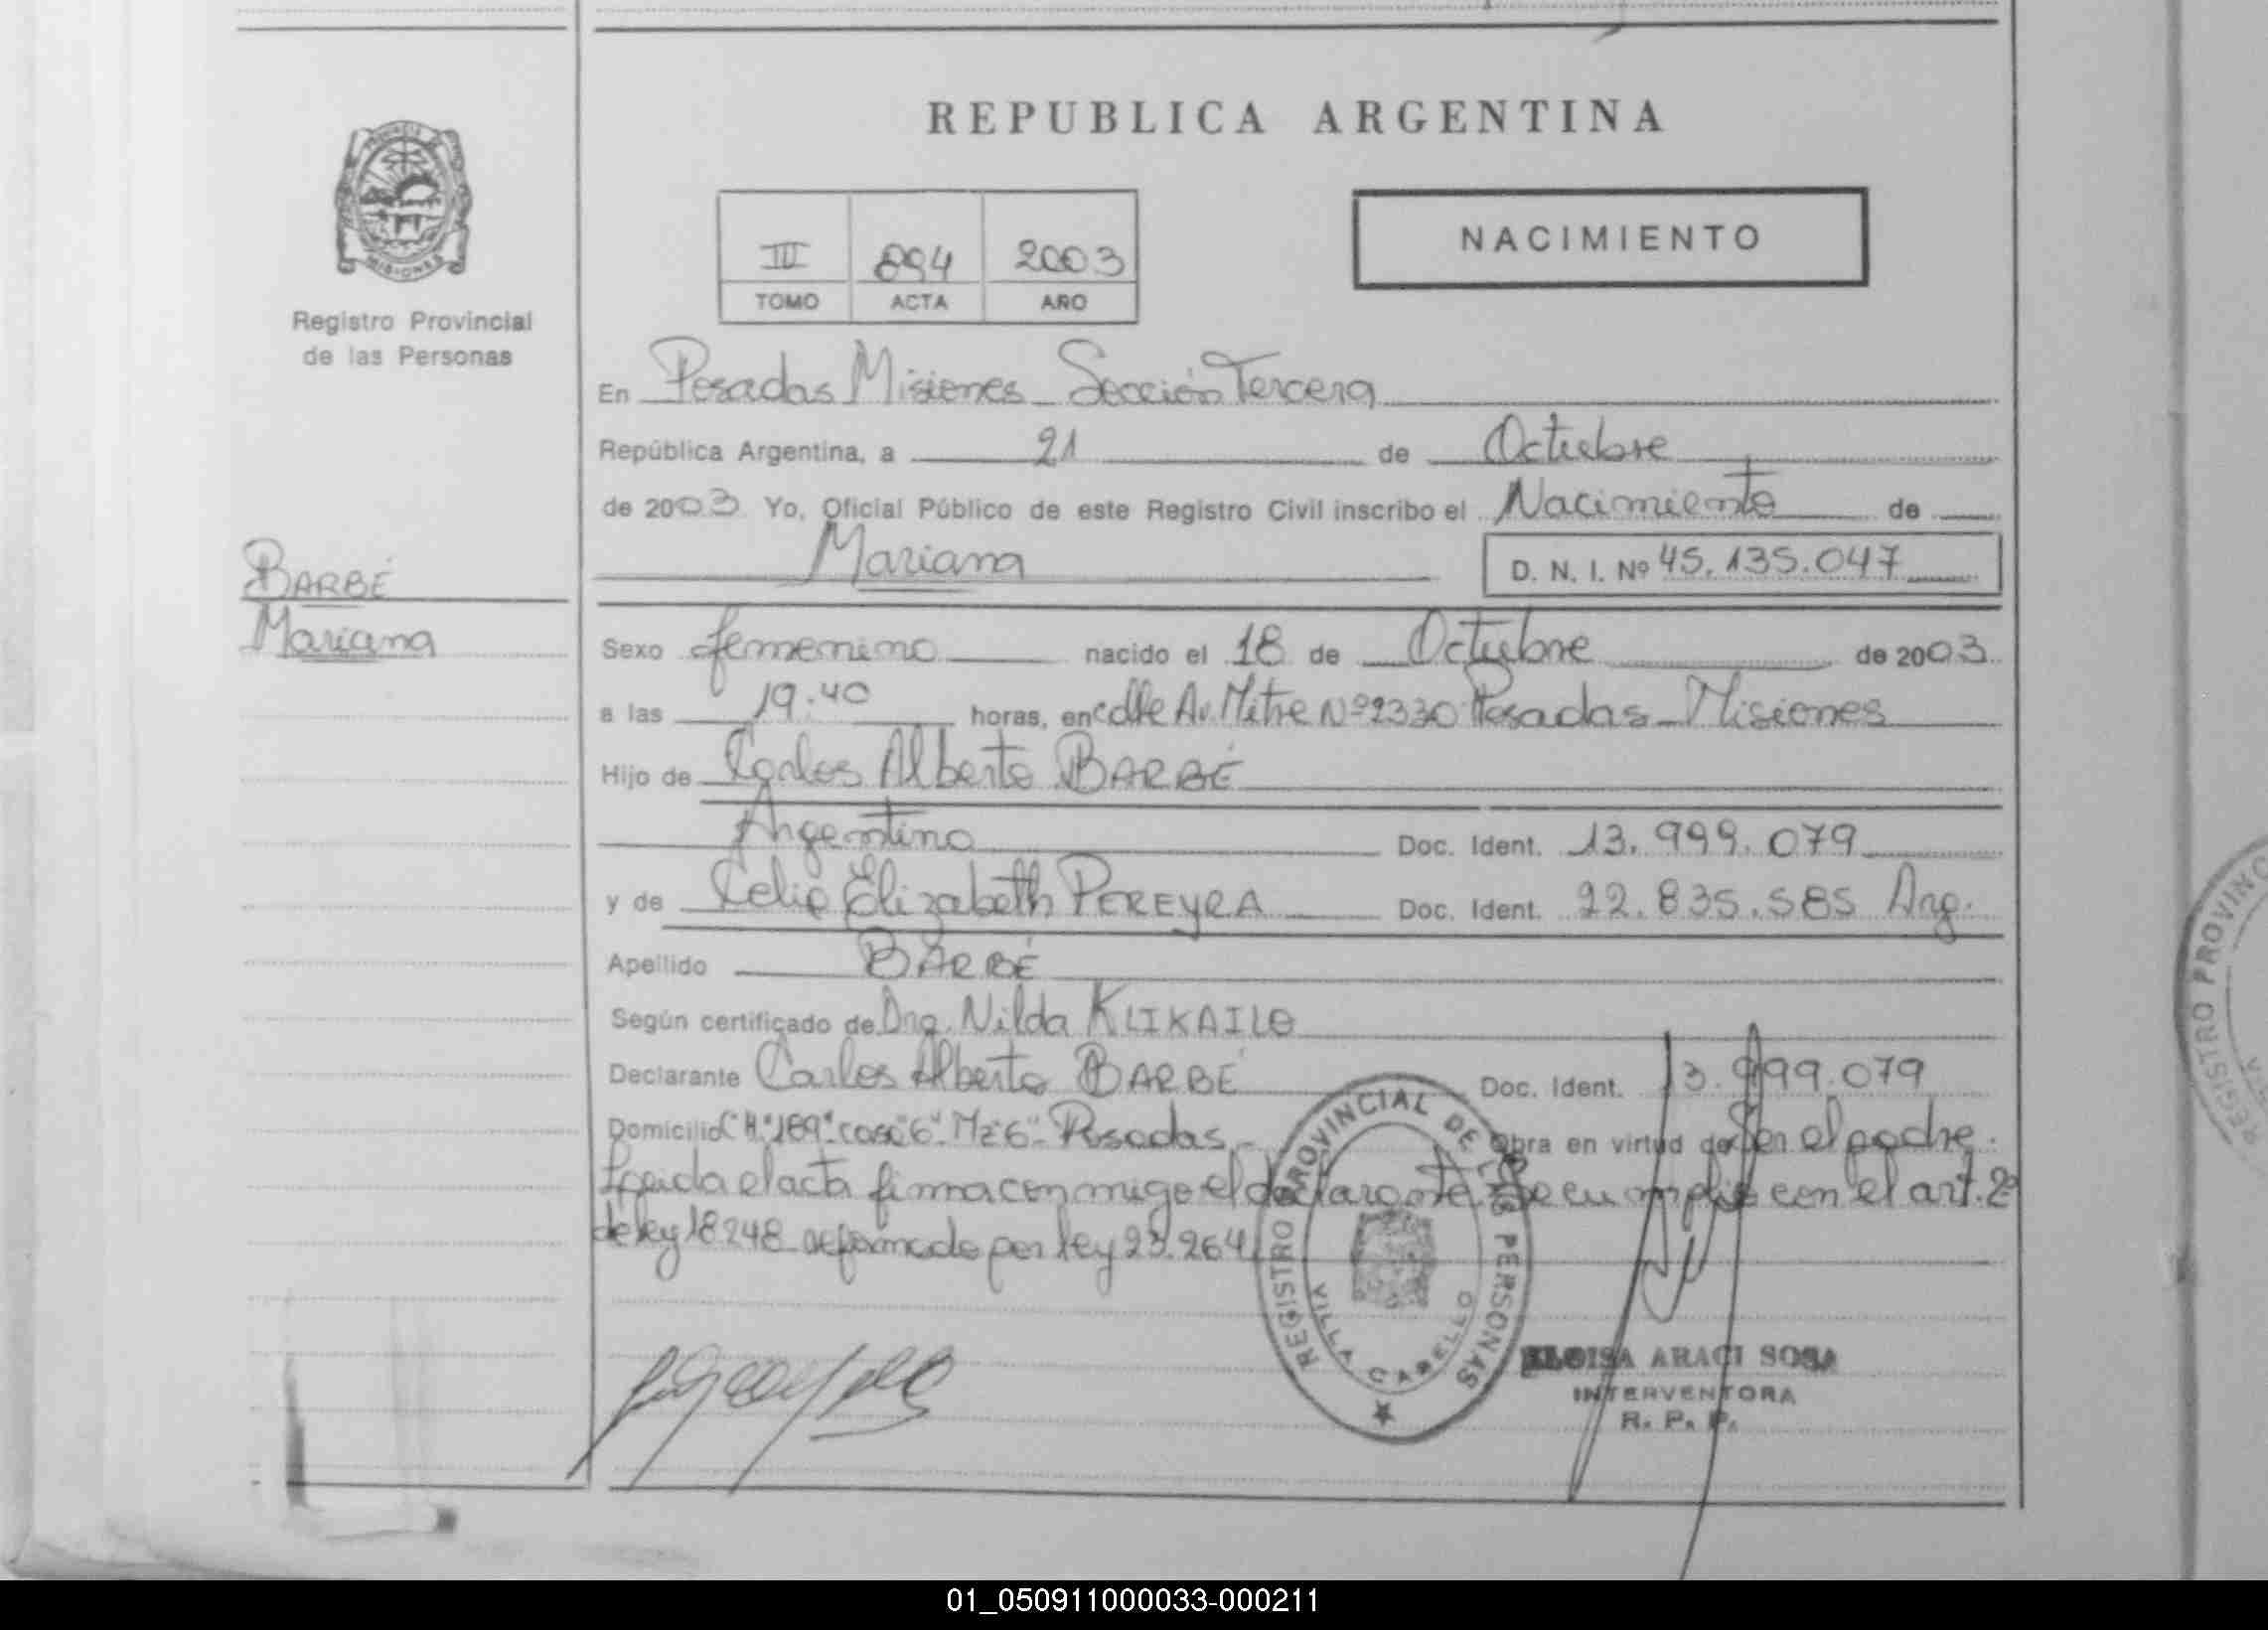 REPUBLICA ARGENTINA
PROVINCIA DE
MISIONES
Registro Provincial
de las Personas
III 894 2003
TOMO ACTA AÑO
NACIMIENTO
En Posadas Misiones Sección Tercera
República Argentina, a 21 de Octubre
de 2003 Yo, Oficial Público de este Registro Civil inscribo el Nacimiento de
Mariana
D. N. I. Nº 45.135.047
BARBÉ
Mariana
Sexo femenino nacido el 18 de Octubre de 2003
a las 19.40 horas, en calle Av. Mitre Nº 2330 Posadas - Misiones
Hijo de Carlos Alberto BARBÉ
Argentino Doc. Ident. 13.999.079
y de Celia Elizabeth PEREYRA Doc. Ident. 22.835.585 Arg.
Apellido BARBÉ
Según certificado de Dra. Nilda KLIKAILO
Declarante Carlos Alberto BARBÉ Doc. Ident. 13.999.079
Domicilio CH."189" casa "6" Mz "6" Posadas Obra en virtud de Ser el padre.
Leida el acta firma conmigo el declarante. Se cumplió con el art. 2º
de ley 18248 reformado por ley 23.264
REGISTRO PROVINCIAL DE LAS PERSONAS
VILLA CABELLO
ELOISA ARACI SOSA
INTERVENTORA
R. P. P.
REGISTRO PROVINC
01_050911000033-000211